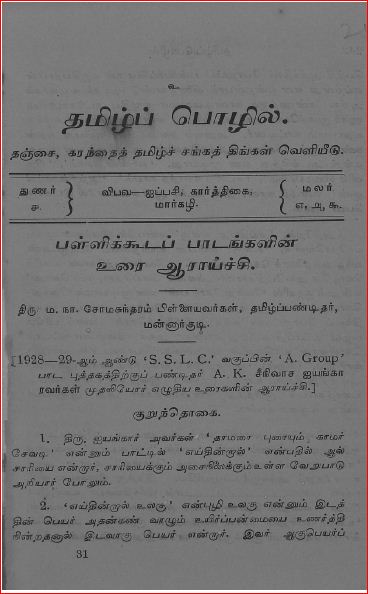 உ
தமிழ்ப் பொழில்.
தஞ்சை, கரந்தைத் தமிழ்ச் சங்கத் திங்கள் வெளியீடு.
துணர் } விபவ—ஐப்பசி, கார்த்திகை, { மலர்
௪. } மார்கழி. { எ, அ, கூ.
பள்ளிக்கூடப் பாடங்களின்
உரை ஆராய்ச்சி.
திரு ம. நா. சோமசுந்தரம் பிள்ளையவர்கள், தமிழ்ப்பண்டிதர்,
மன்னார்குடி.
[1928—29-ஆம் ஆண்டு ‘S. S. L. C.’ வகுப்பின் ‘A. Group’
பாட புத்தகத்திற்குப் பண்டிதர் A. K. சீநிவாச ஐயங்கா
ரவர்கள் முதலியோர் எழுதிய உரைகளின் ஆராய்ச்சி.]
குறுந்தொகை.
1. திரு. ஐயங்கார் அவர்கள் ‘தாமரை புரையும் காமர்
சேவடி’ என்னும் பாட்டில் ‘எய்தின்றால்’ என்பதில் ஆல்
சாரியை என்றார், சாரியைக்கும் அசைநிலைக்கும் உள்ள வேறுபாடு
அறியார் போலும்.
2. ‘எய்தின்றால் உலகு’ என்புழி உலகு என்னும் இடத்
தின் பெயர் அதன்கண் வாழும் உயிர்ப்பன்மையை உணர்த்தி
நின்றதனால் இடவாகு பெயர் என்றார். இவர் ஆகுபெயர்ப்
31